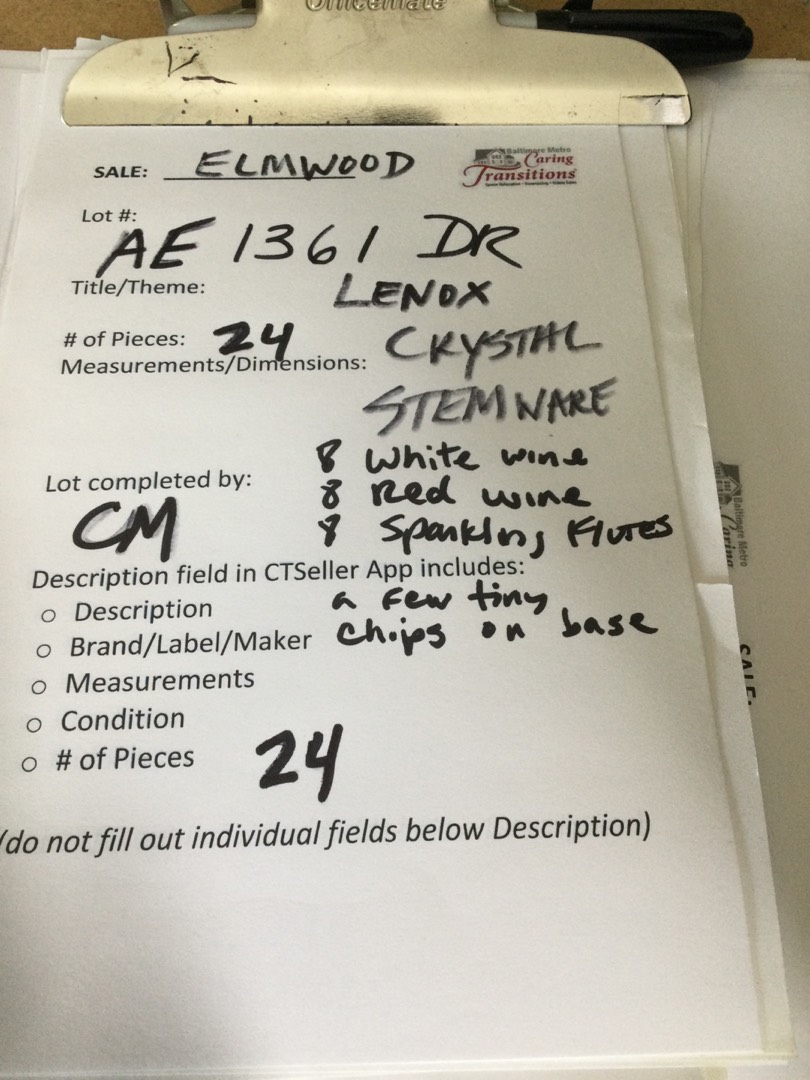 Officemate
SALE: ELMWOOD
Baltimore Metro
Caring
Transitions
Lot #:
AE 1361 DR
Title/Theme: LENOX
# of Pieces: 24 CRYSTAL
Measurements/Dimensions:
STEMWARE
8 White wine
Lot completed by: 8 Red wine
CM 8 Sparkling Flutes
Description field in CTSeller App includes:
o Description a few tiny
o Brand/Label/Maker chips on base
o Measurements
o Condition
o # of Pieces 24
(do not fill out individual fields below Description)
Baltimore Metro
Caring
SALE: